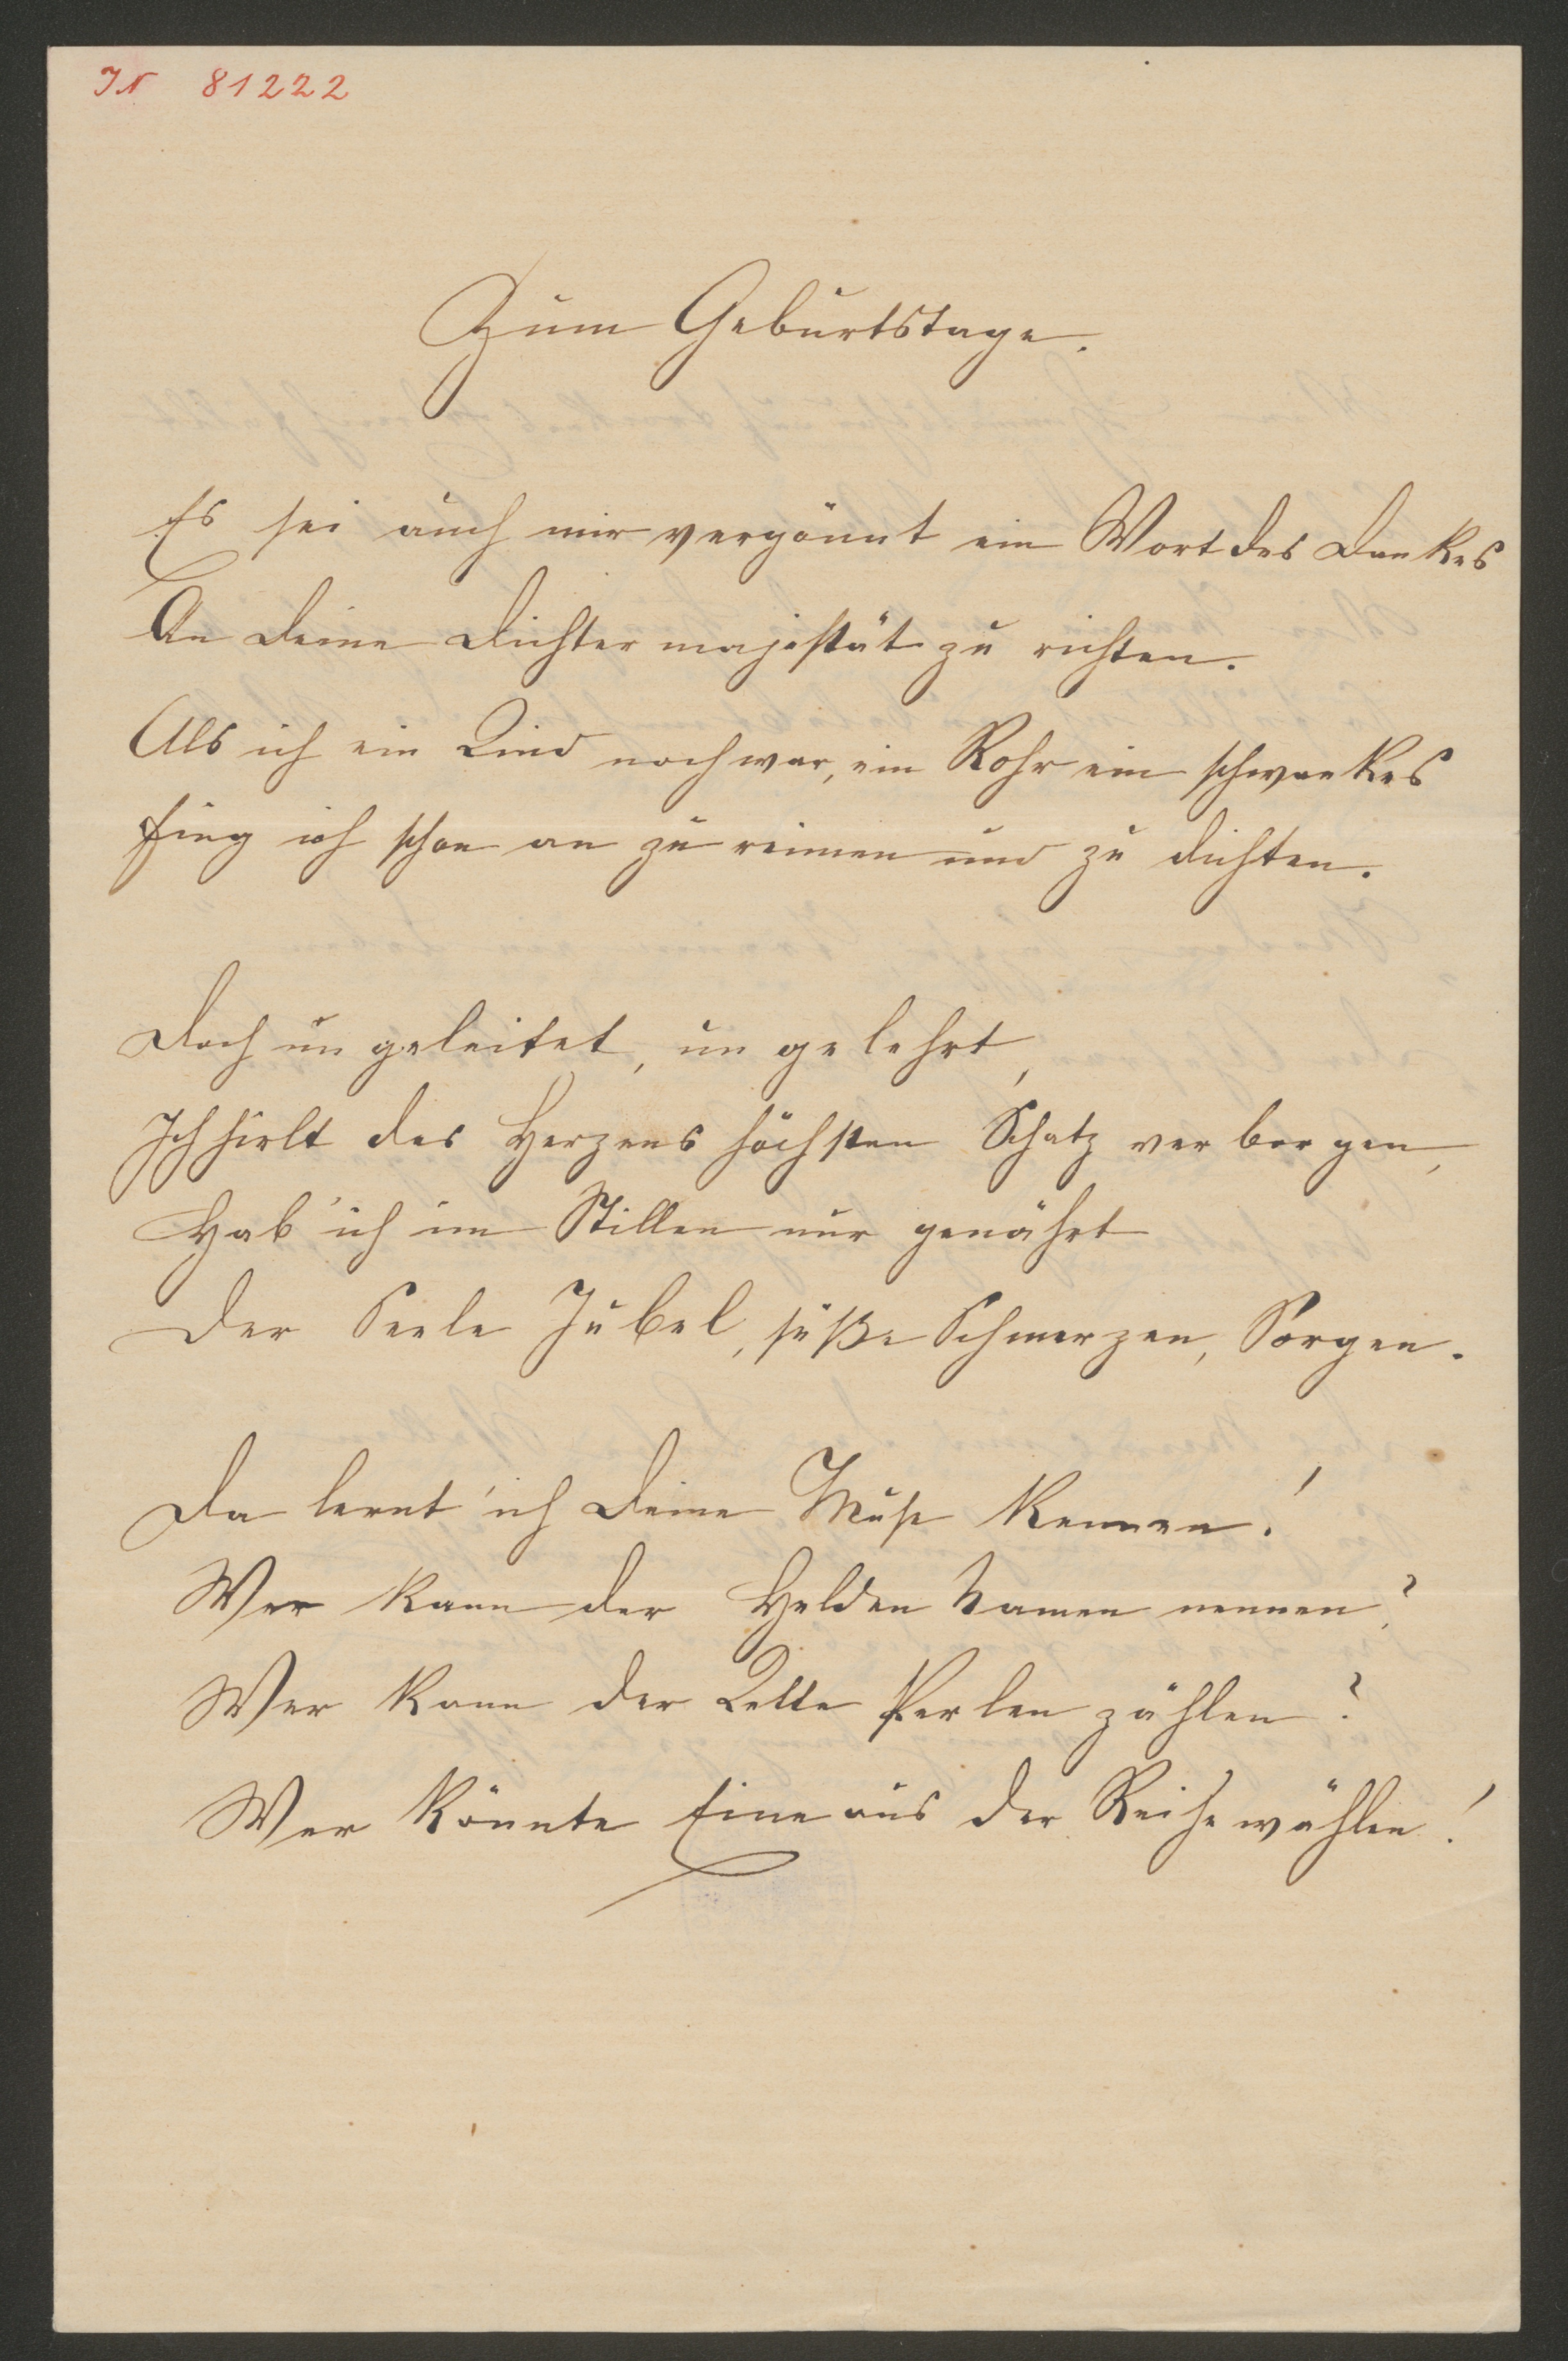 IN 81222
Zum Geburtstage.
Es sei auch mir vergönnt ein Wort des Dankes
An Deine Dichtermajestät zu richten.
Als ich ein Kind noch war, ein Rohr ein schwankes
fing ich schon an zu reimen und zu dichten.
Doch ungeleitet, ungelehrt,
Ich hielt des Herzens höchsten Schatz verborgen,
Hab' ich im Stillen nur genährt
Der Seele Jubel, süße Schmerzen, Sorgen.
Da lernt' ich Deine Muse kennen!
Wer kann der Helden Namen nennen?
Wer kann der Kette Perlen zählen?
Wer könnte Eine aus der Reihe wählen!